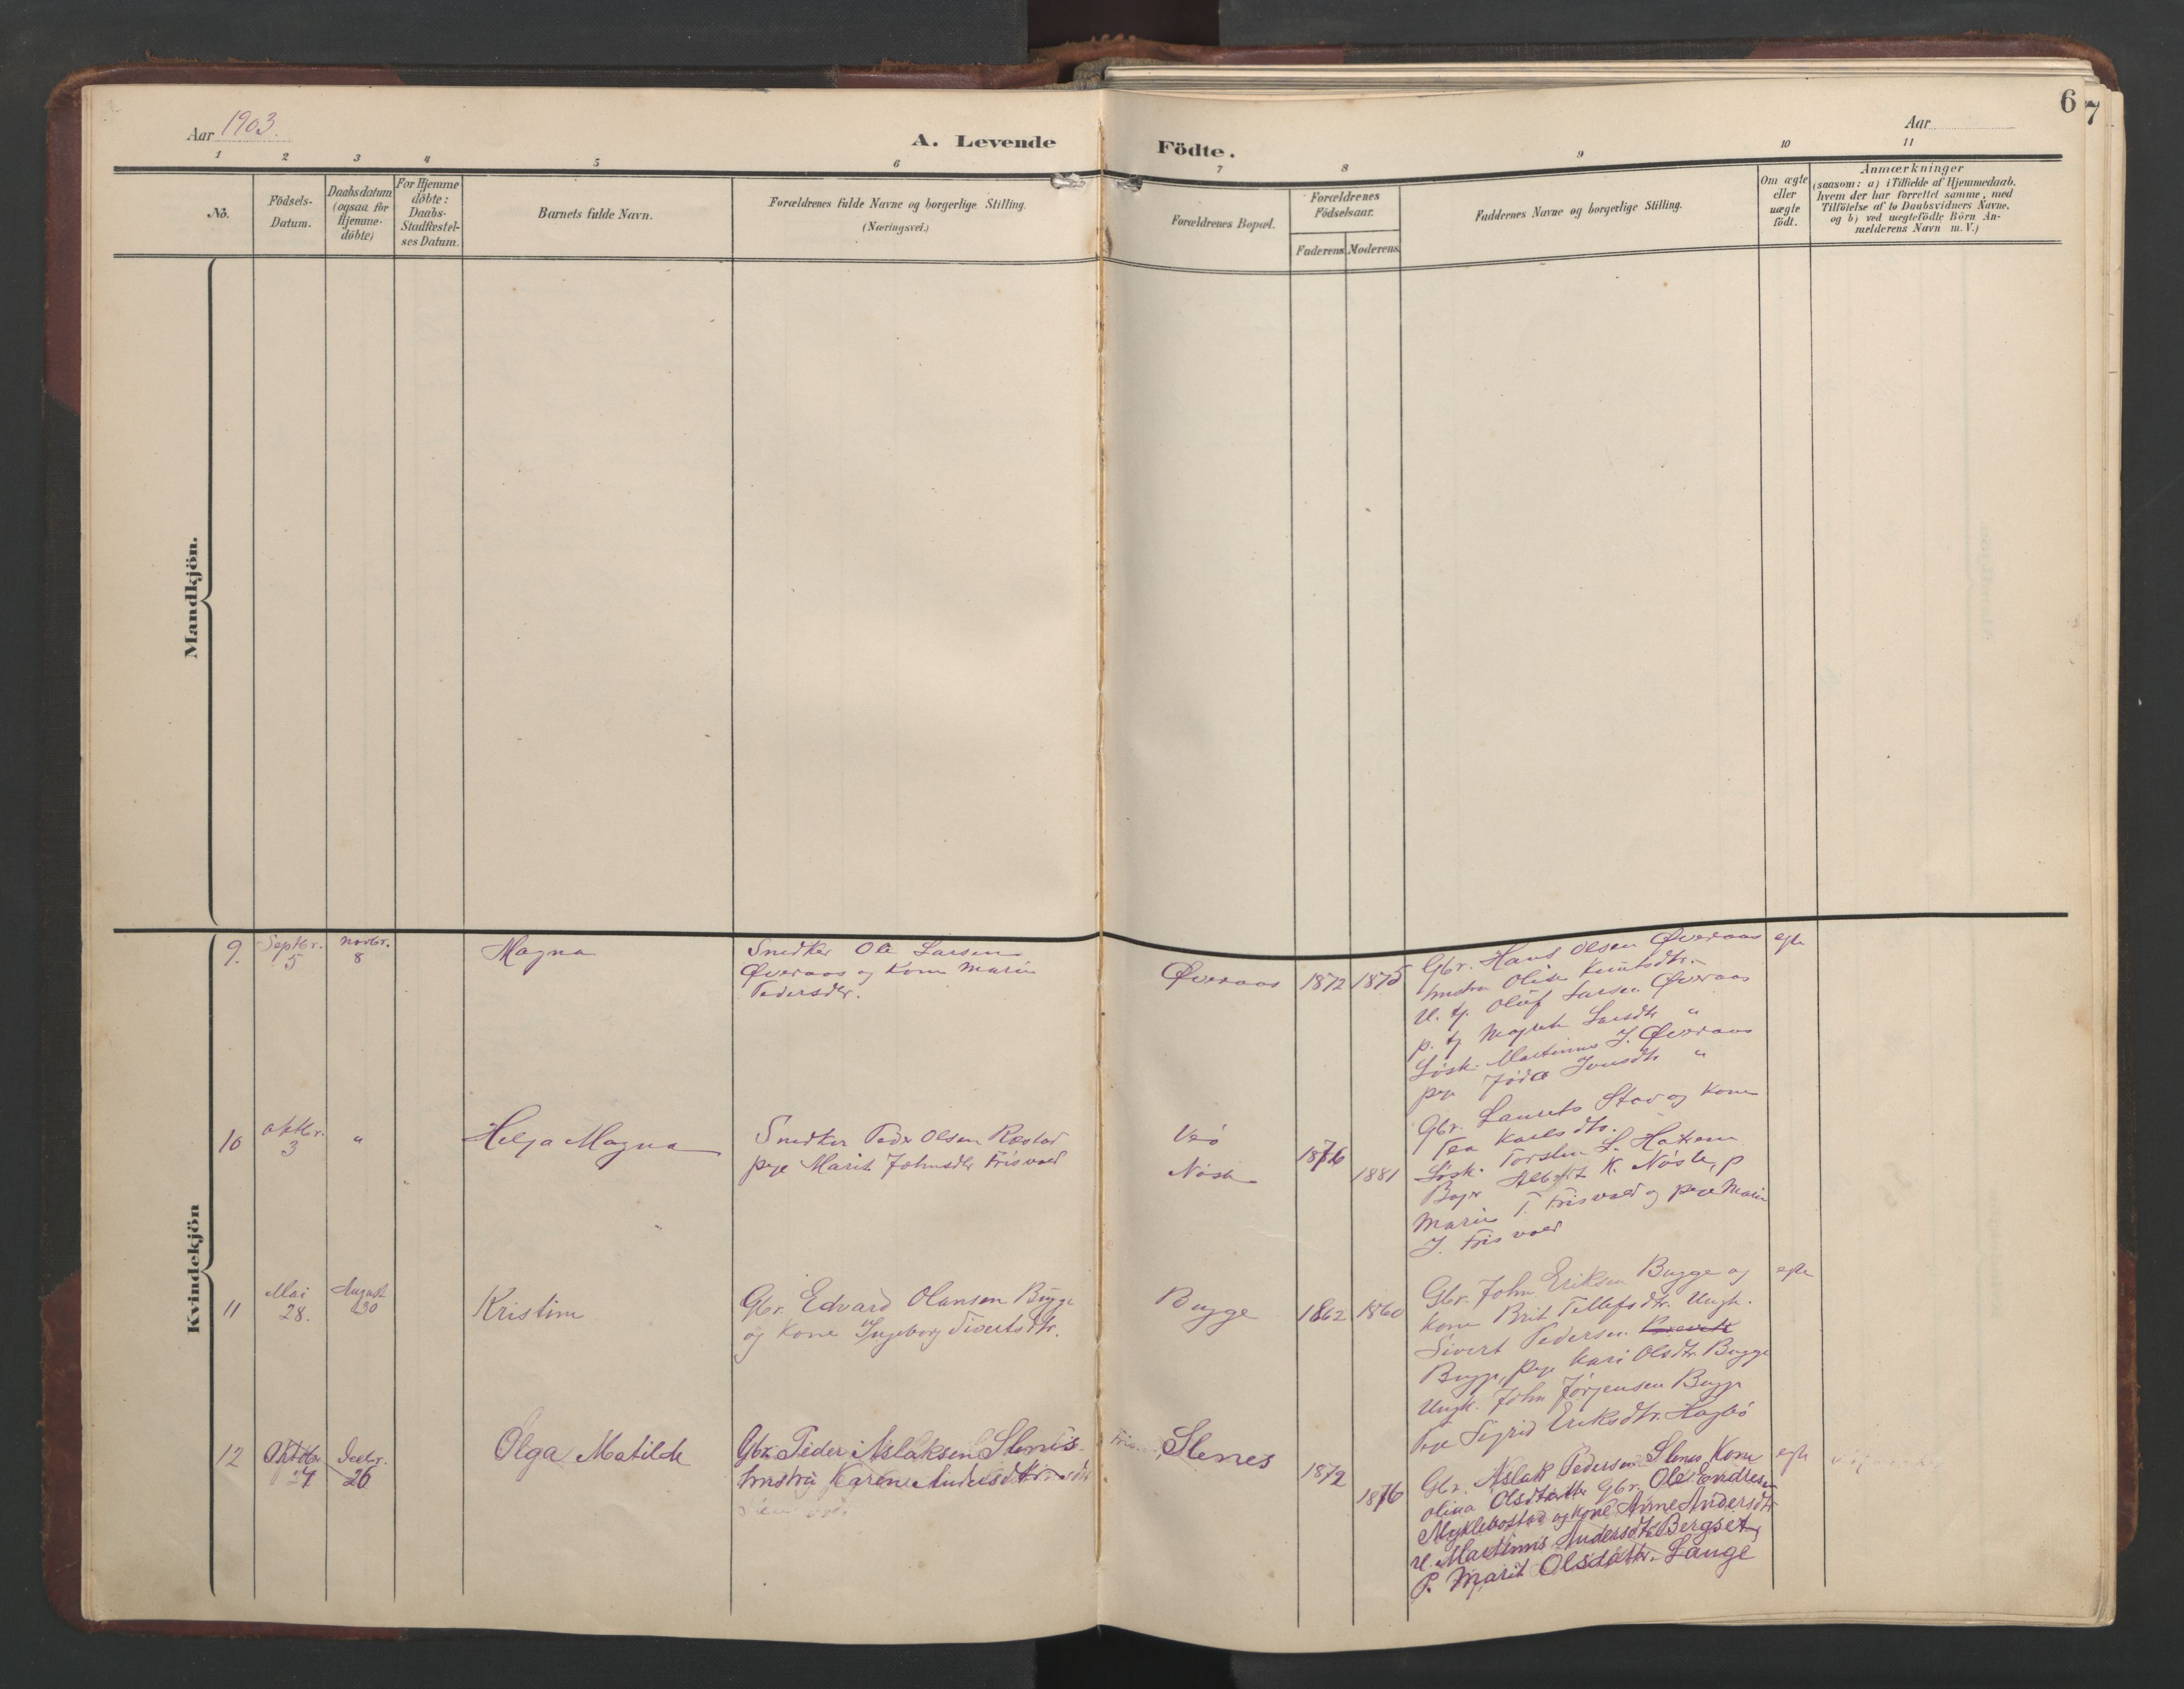 Aar 1903.
A. Levende Födte.
Aar
6
7
1 2 3 4 5 6 7 8 9 10 11
Nö.
Födsels-
Datum.
Daabsdatum
(ogsaa for
Hjemme-
döbte)
For Hjemme
döbte:
Daabs-
Stadfæstel-
ses Datum.
Barnets fulde Navn.
Forældrenes fulde Navne og borgerlige Stilling.
(Næringsvei.)
Forældrenes Bopæl.
Forældrenes
Födselsaar.
Faderens
Moderens
Faddernes Navne og borgerlige Stilling.
Om ægte
eller
uægte
födt.
Anmærkninger
(saasom: a) i Tilfælde af Hjemmedaab,
hvem der har forrettet samme, med
Tilföielse af to Daabsvidners Navne,
og b) ved uægtefödte Börn An-
melderens Navn m.V.)
Mandkjön.
Kvindekjön
9.
Septbr.
5
Novbr.
8
Magna
Snedker Ole Larsen
Øveraas og Kone Marie
Pedersdtr.
Øveraas
1872
1875
Gbr. Hans Olsen Øveraas
Knutsdtr.
Oluf Larsen Øveraas
p. Larsdtr "
Løsk. Martinus J. Øveraas
pige Jonsdtr "
egte
10
Oktbr.
3
"
Helga Magna
Snedker Peder Olsen Røstad
pige Marit Johnsdtr Frisvold
Veø
Nøste
1876
1881
Gbr. Laurits Stav og Kone
Tea Karlsdtr.
Løsk. Torsten L. Hatlem
Albert K. Nøste, p
Marie T. Frisvold og pige Marie
J. Frisvold
11
Mai
28.
August
30
Kristine
Gbr. Edvard Olausen Bugge
og Kone Ingeborg Sivertsdtr.
Bugge
1862
1860
Gbr. John Eriksen Bugge og
Kone Brit Tellefsdtr. Ungk.
Sivert Pedersen
Bugge, pige Kari Olsdtr. Bugge
Ungk. John Jørgensen Bugge
Pige Sigrid Eriksdtr. Hagbø
egte
12
Oktbr
27
Decbr.
26
Olga Matilde
Gbr. Peder Aslaksen Slenes
hustru Karen Andersdtr
Slenes
1872
1876
Gbr. Aslak Pedersen Slenes Kone
Olina Olsdatter Gbr. Ole Endresen
Myklebostad og Kone Anne Andersdtr
U. Martinus Andersdtr Bergset,
P. Marit Olsdattr. Lange
egte